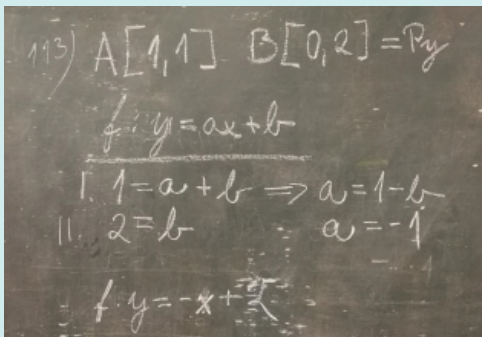 113) A[1,1] B[0,2] = Py
f: y = ax + b
I. 1 = a + b ⇒ a = 1 - b
II. 2 = b a = -1
f: y = -x + 2